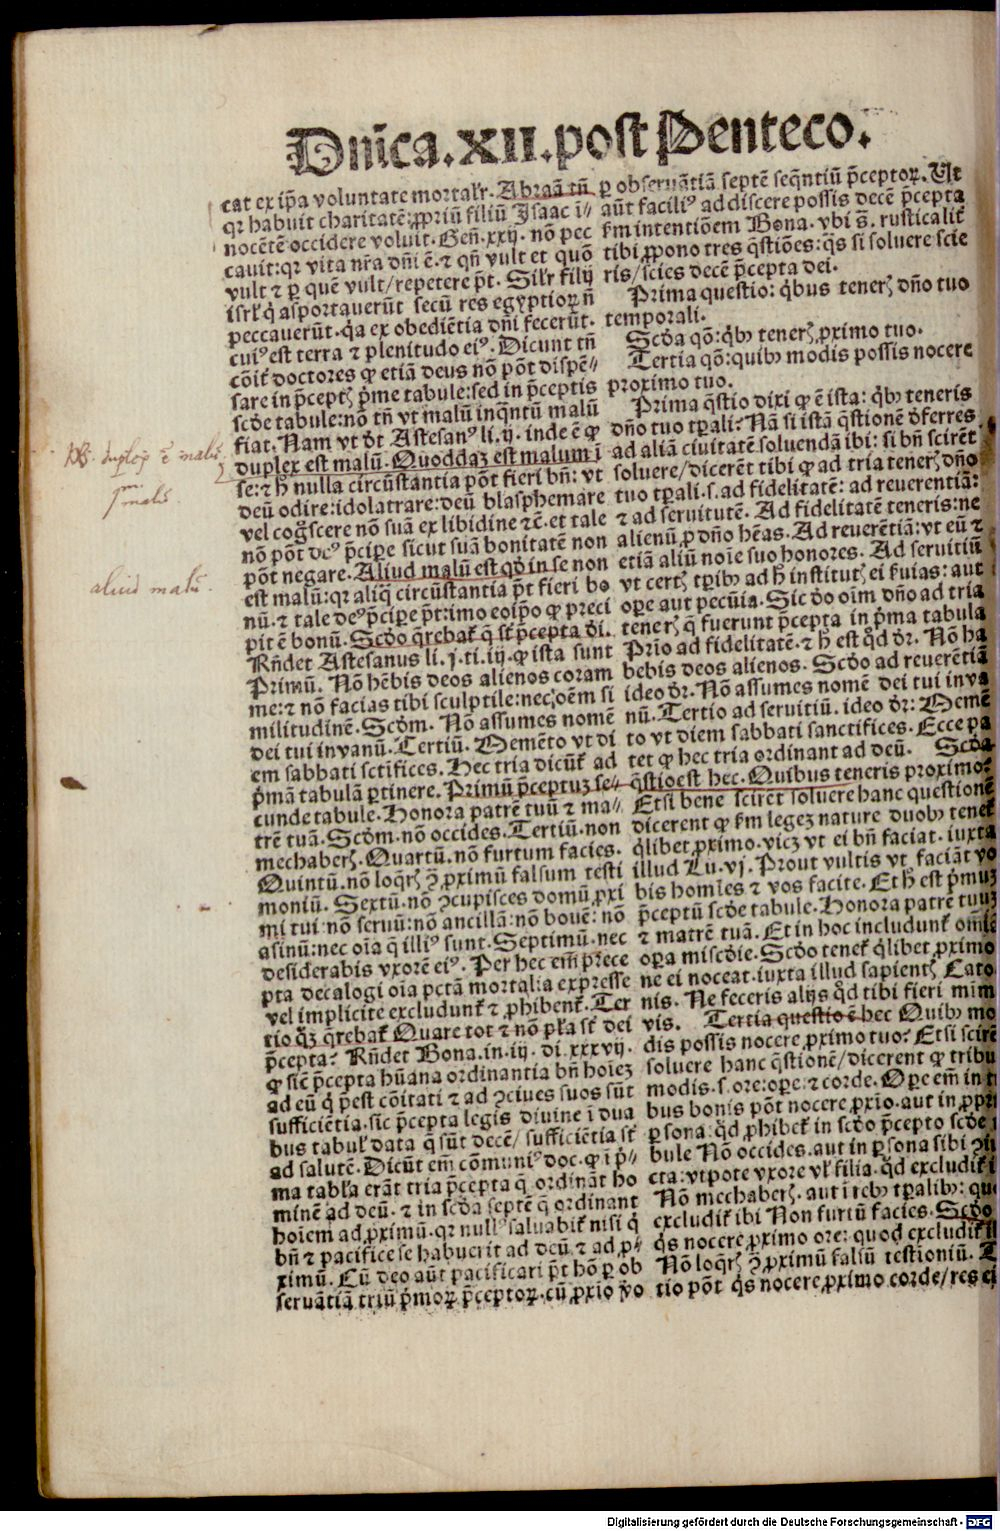 Dnīca.XII.post Penteco.
cat ex ip̄a voluntate mortalr̄. Abraā tn̄
qr habuit charitatē: ꝓpriū filiū Isaac ī⸗
nocētē occidere voluit. Gen̄.xxij. nō pec
cauit: qr vita nr̄a dn̄i ē. ⁊ qn̄ vult et quō
vult ⁊ ꝑ quē vult/ repetere p̄t. Silr̄ filij
isrl̄ q̇ asportauerūt secū res egyptioꝝ nō
peccauerūt. q̇a ex obediētia dn̄i fecerūt.
cuiꝰ est terra ⁊ plenitudo eiꝰ. Dicunt tn̄
cōit̄ doctores ꝙ etiā deus nō pōt dispē⸗
sare in p̄ceptꝭ p̄me tabule: sed in p̄ceptis
scd̄e tabule: nō tn̄ vt malū inq̄ntū malū
fiat. Nam vt dt̄ Astesanꝰ li.ij. inde ē ꝙ
duplex est malū. Quoddaꝫ est malum ī
se: ⁊ ħ nulla circūstantia pōt fieri bn̄: vt
deū odire: idolatrare: deū blasphemare
vel cog̃scere nō suā ex libidine ⁊c̄. et tale
nō pōt deꝰ p̄cipe sicut suā bonitatē non
pōt negare. Aliud malū est qd̓ in se non
est malū: qr aliq̄ circūstantia p̄t fieri bo
nū. ⁊ tale deꝰ p̄cipe p̄t: imo eoip̄o ꝙ preci
pit ē bonū. Scd̓o q̄rebat̄ q̄ st̄ p̄cepta di.
Rn̄det Astesanus li.j.ti.iij. ꝙ ista sunt
Primū. Nō hēbis deos alienos coram
me: ⁊ nō facias tibi sculptile: necꝫ oēm si
militudinē. Scd̓m. Nō assumes nomē
dei tui invanū. Tertiū. Memēto vt di
em sabbati sctifices. Hec tria dicūt̄ ad
p̄mā tabulā pertinere. Primū p̄ceptuꝫ se⸗
cunde tabule. Honora patrē tuū ⁊ ma⸗
trē tuā. Scd̓m. nō occides. Tertiū. non
mechaberꝭ. Quartū. nō furtum facies.
Quintū. nō loq̄rꝭ ↄ̄ ꝓximū falsum testi
moniū. Sextū. nō ↄcupisces domū ꝓxi
mi tui: nō seruū: nō ancillā: nō bouē: nō
asinū: nec oīa q̄ illiꝰ sunt. Septimū. nec
desiderabis vxorē eiꝰ. Per hec em̄ prece
pta decalogi oīa pctā mortalia expresse
vel implicite excludunt̄ ⁊ ꝓhibent̄. Ter
tio q̇ꝫ q̄rebat̄ Quare tot ⁊ nō pl̄a st̄ dei
p̄cepta? Rn̄det Bona. in.iij. di.xxxvij.
ꝙ sic̄ p̄cepta hūana ordinantia bn̄ hoīeꝫ
ad eū q̇ p̄est cōitati ⁊ ad ↄciues suos sūt
sufficiētia. sic̄ p̄cepta legis diuine ī dua
bus tabul̄ data q̄ sūt decē/ sufficiētia st̄
ad salutē. Dicūt em̄ cōmuniꝰ doc. ꝙ ī p̄⸗
ma tabl̄a erāt tria p̄cepta q̄ ordināt ho
minē ad deū. ⁊ in scd̓a septē q̄ ordinant
hoīem ad ꝓximū. qr nullꝰ saluabit̄ nisi q̇
bn̄ ⁊ pacifice se habuerit ad deū ⁊ ad ꝓ⸗
ximū. Cū deo aūt pacificari p̄t hō ꝑ ob
seruātiā triū p̄moꝝ p̄ceptoꝝ. cū ꝓxīo ṽo
ꝑ obseruātiā septē seq̄ntiū p̄ceptoꝝ. Ut
aūt faciliꝰ addiscere possis decē p̄cepta
ẜm intentiōem Bona. vbi s̄. rusticalit̄
tibi ꝓpono tres q̄stiōes: q̄s si soluere scie
ris/ scies decē p̄cepta dei.
Prima questio: q̇bus tenerꝭ dn̄o tuo
temporali.
Scd̓a qō: q̇bꝰ tenerꝭ ꝓximo tuo.
Tertia qō: quibꝰ modis possis nocere
proximo tuo.
Prima q̄stio dixi ꝙ ē ista: q̇bꝰ teneris
dn̄o tuo tp̄ali? Nā si istā q̄stionē d̓ferres
ad aliā ciuitatē soluendā ibi: si bn̄ scirēt
soluere/ dicerēt tibi ꝙ ad tria tenerꝭ dn̄o
tuo tp̄ali. s. ad fidelitatē: ad reuerentiā:
⁊ ad seruitutē. Ad fidelitatē teneris: ne
alienū ꝓ dn̄o hēas. Ad reuerētiā: vt eū ⁊
etiā aliū noīe suo honores. Ad seruitiū
vt certꝭ tp̄ibꝰ ad ħ institutꝭ ei ẜuias: aut
oꝑe aut pecūia. Sic d̓o oīm dn̄o ad tria
tenerꝭ q̄ fuerunt p̄cepta in p̄ma tabula
Prīo ad fidelitatē. ⁊ ħ est qd̓ dr̄. Nō ha
bebis deos alienos. Scd̓o ad reuerētiā
ideo dr̄. Nō assumes nomē dei tui inva
nū. Tertio ad seruitiū. ideo dr̄: Memē
to vt diem sabbati sanctifices. Ecce pa
tet ꝙ hec tria ordinant ad deū. Scd̓a
q̄stio est hec. Quibus teneris proximo?
Et si bene scirēt soluere hanc questionē
dicerent ꝙ ẜm legeꝫ nature duobꝰ tenet̄
q̇libet ꝓximo. vicꝫ vt ei bn̄ faciat. iuxta
illud Lu.vj. Prout vultis vt faciāt vo
bis homīes ⁊ vos facite. Et ħ est p̄muꝫ
p̄ceptū scd̓e tabule. Honora patrē tuuꝫ
⁊ matrē tuā. Et in hoc includunt̄ om̄ia
oꝑa miscd̓ie. Scd̓o tenet̄ q̇libet ꝓximo
ne ei noceat. iuxta illud sapientꝭ Cato
nis. Ne feceris alijs qd̓ tibi fieri mini
vis. Tertia questio ē hec Quibꝰ mo
dis possis nocere ꝓximo tuo? Et si scirē
soluere hanc q̄stionē/ dicerent ꝙ tribu
modis. s. ore: oꝑe: ⁊ corde. Oꝑe em̄ in
bus bonis pōt nocere ꝓxīo. aut in ꝓpri
ꝑsona: qd̓ ꝓhibet̄ in scd̓o p̄cepto scd̓e
bule Nō occides. aut in ꝑsona sibi ↄiū
cta: vtpote vxore vl̄ filia. qd̓ excludit̄ i
Nō mechaberꝭ. aut ī rebꝰ tp̄alibꝰ: qu
excludit̄ ibi Non furtū facies. Scd̓o
q̇s nocere ꝓximo ore: quod excludit̄
Nō loq̄rꝭ ↄ̄ ꝓximū falsū testioniū. T
tio pōt q̇s nocere ꝓximo corde/ res ei
NB. duplex ē malū
malū.
aliud malū.
Digitalisierung gefördert durch die Deutsche Forschungsgemeinschaft - DFG